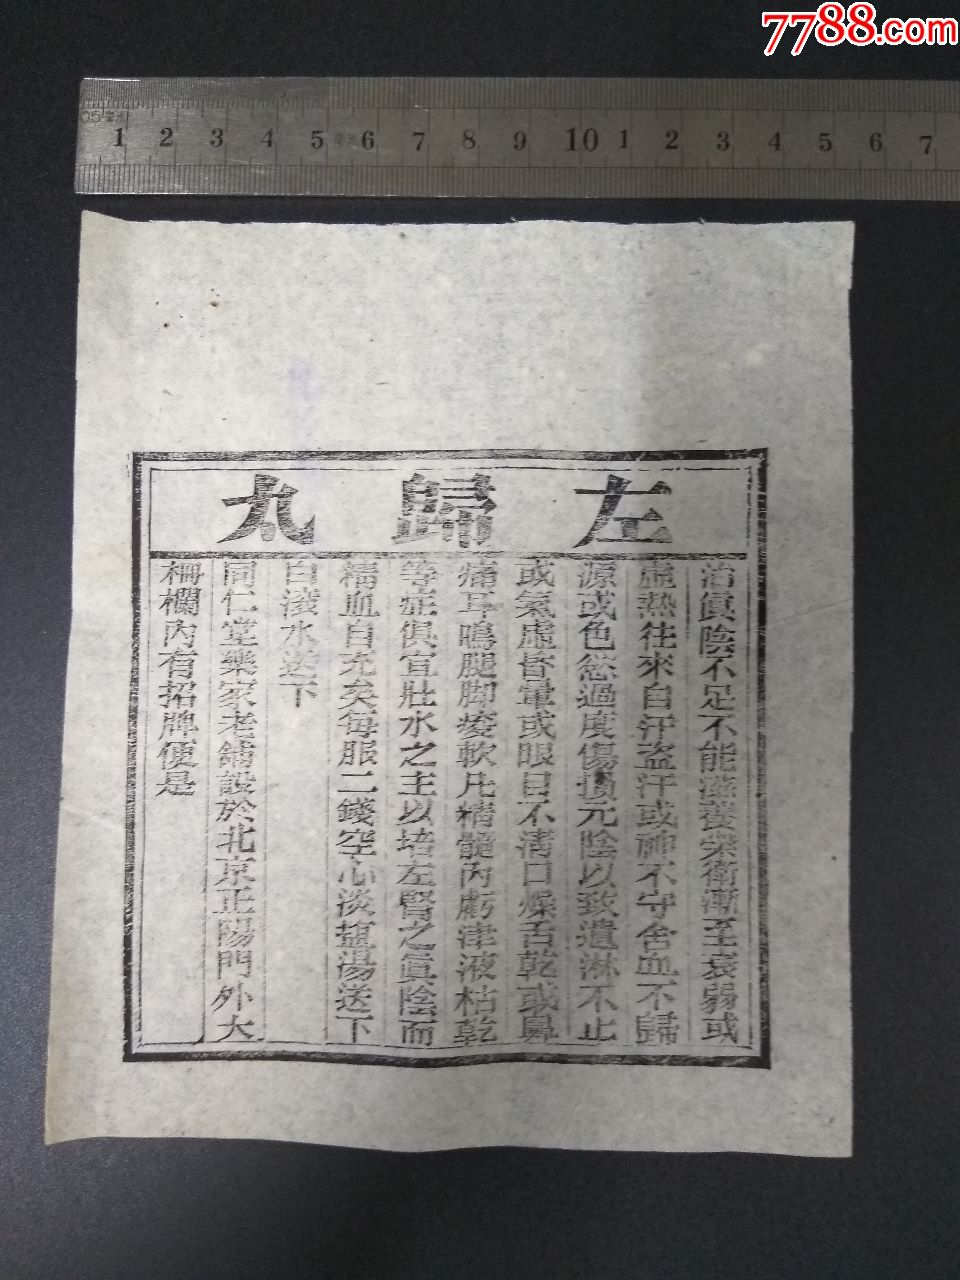 7788.com
0.5毫米
1 2 3 4 5 毫米 6 7 8 9 10 1 2 3 4 5 6 7
左歸丸
治眞陰不足不能滋養榮衛漸至衰弱或
虛熱往來自汗盗汗或神不守舍血不歸
源或色慾過度傷損元陰以致遺淋不止
或氣虛昏暈或眼目不清口燥舌乾或鼻
痛耳鳴腿脚痠軟凡精髓內虧津液枯乾
等症俱宜壯水之主以培左腎之眞陰而
精血自充矣每服二錢空心淡塩湯送下
白滚水送下
同仁堂樂家老鋪設於北京正陽門外大
柵欄內有招牌便是